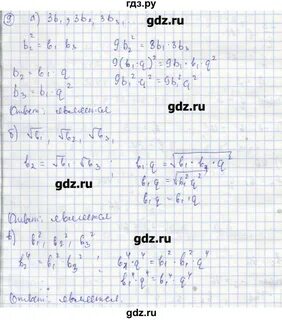 9) а) 3b₁, 3b₂, 3b₃,
b₂² = b₁ b₃ 9b₂² = 3b₁ 3b₃
9(b₁·q)² = 9b₁·b₁q²
b₂ = b₁·q 9b₁²q² = 9b₁²q²
b₃ = b₁·q²
Ответ: является
gdz.ru
б) √b₁, √b₂, √b₃,
b₂ = √b₁ √b₃ b₁q = √b₁·b₁·q²
b₁q = √b₁²q²
b₁q = b₁·q
gdz.ru
Ответ: является
в) b₁², b₂², b₃²
b₂⁴ = b₁² b₃² b₁⁴·q⁴ = b₁²·b₁²·q⁴
b₁⁴·q⁴ = b₁⁴·q⁴
gdz.ru
Ответ: является.